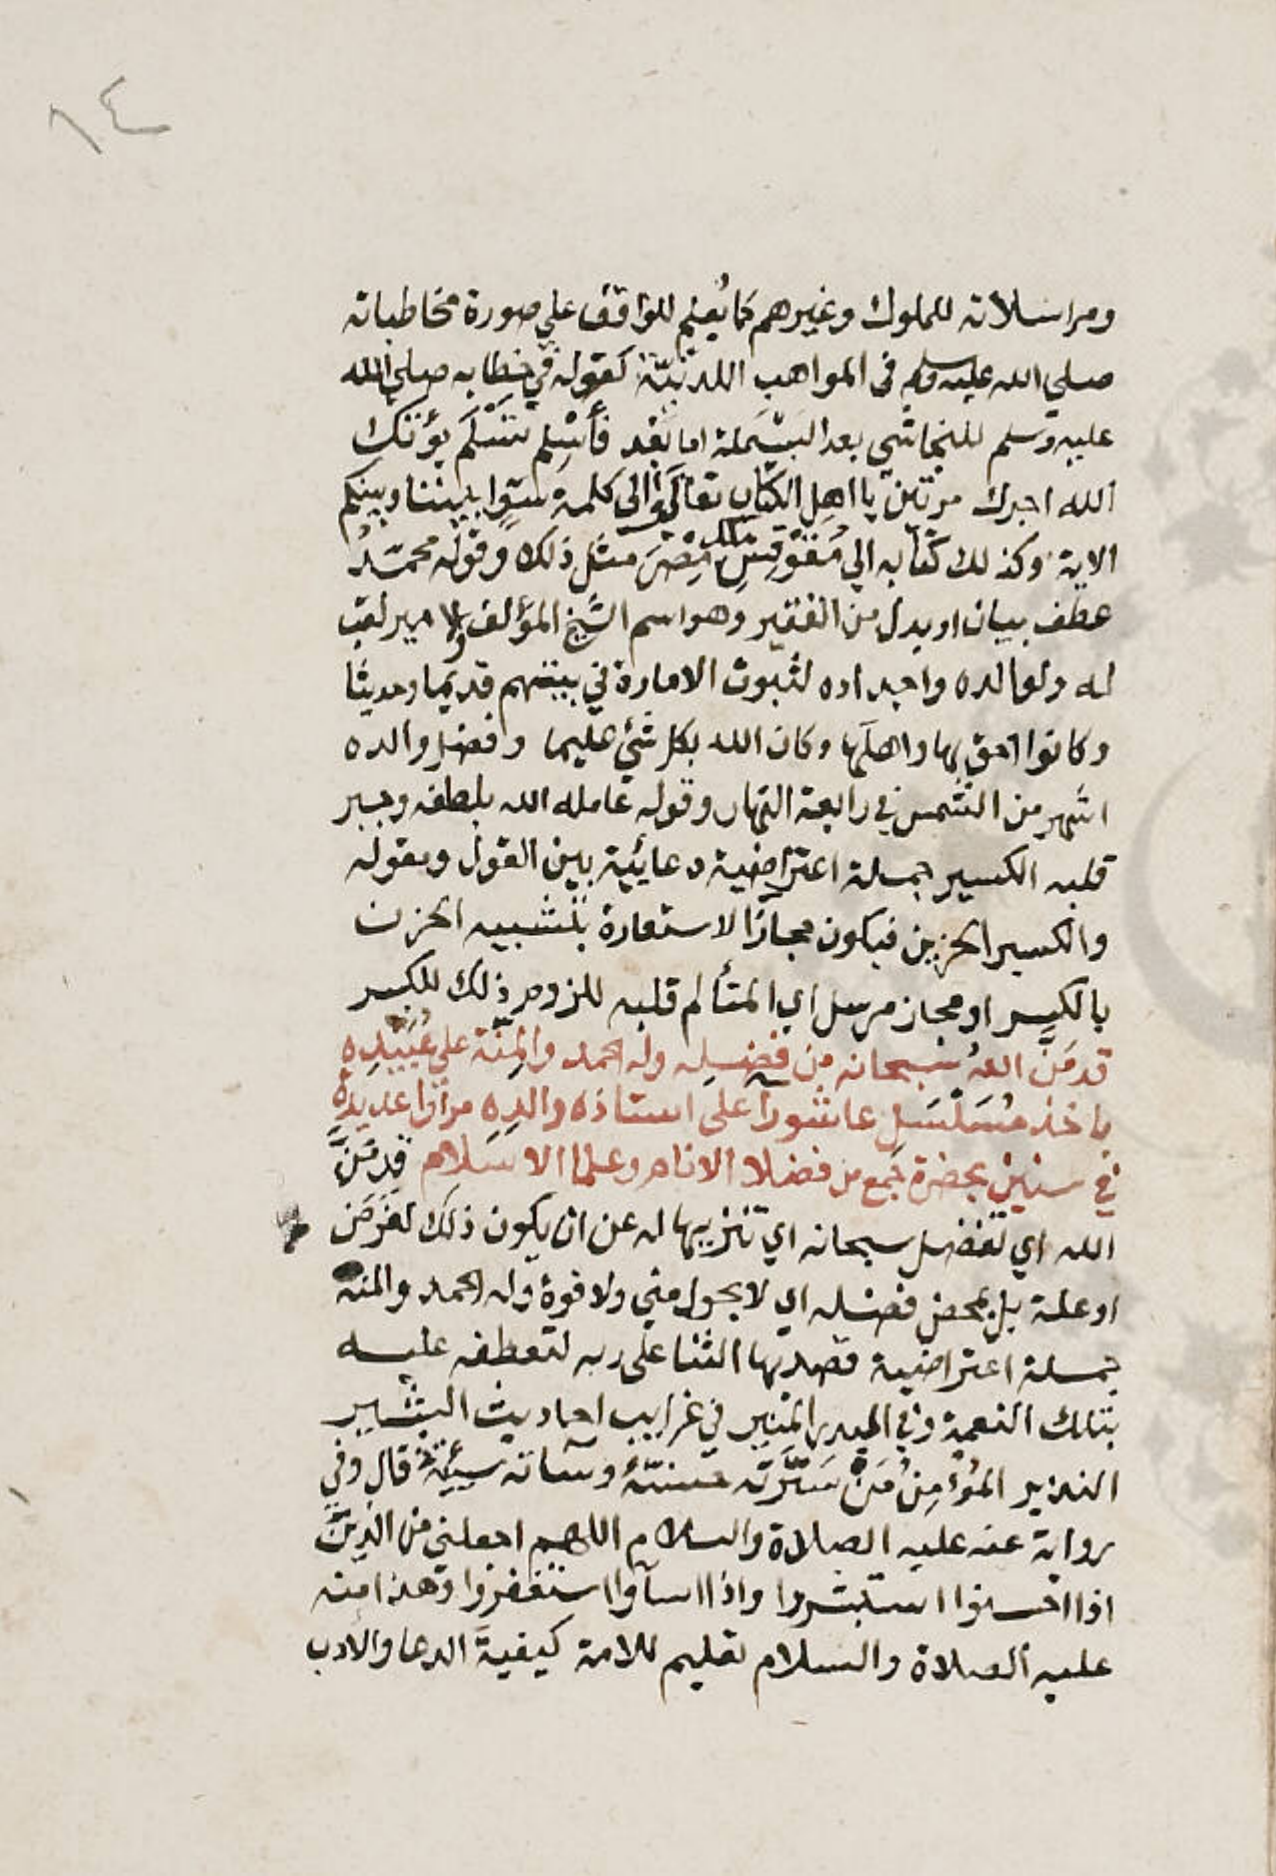 ١٤
ومراسلاته للملوك وغيرهم كما يُعلم للواقف علي صورة مخاطباته
صلي الله عليه وسلم في المواهب اللدنيّة كقوله في خطابه صلي الله
عليه وسلم للنجاشي بعد البسملة اما بَعْد فأَسْلِم تَسْلَم يؤتك
الله اجرك مرتين يا اهل الكتاب تعالَوا الى كلمة سوا بيننا وبينكم
الاية وكذلك كتابه الي مُقَوْقِسِ ملك مِصْرَ مثل ذلك وقوله محمّدُ
عطف بيان او بدل من الفقير وهو اسم الشيخ المؤلف والامير لقب
له ولوالده واجداده لثبوت الامارة في بيتهم قديما وحديثا
وكانوا احق بها واهلَها وكان الله بكل شيء عليما وفضل والده
اشهر من الشمس في رابعة النهار وقوله عامله الله بلطفه وجبر
قلبه الكسير جملة اعتراضية دعائية بين القول ومقوله
والكسير الحزين فيكون مجازا لاستعارة بتشبيه الحزن
بالكسر او مجاز مرسل اي المتألم قلبه للزوم ذلك للكسر
قد مَنَّ اللهُ سبحانه مِن فضلِه وله الحمد والمِنّة علي عُبَيْدِه
باخذ مُسَلْسَل عاشورا على استاذه والدِه مرارا عديدةً
في سنين بحضرة جَمع من فضلا الانام وعلما الاسلام قد مَنَّ
الله اي تفضل سبحانه اي تنزيها له عن ان يكون ذلك لغَرَض
او علة بل بمحض فضله اي لا بحول مني ولا قوة وله الحمد والمنه
جملة اعتراضية قصد بها الثنا على ربه لتعطفه عليه
بتلك النعمة وفي البدر المنير في غرايب احاديث البشير
النذير المُؤمِنُ مَنْ سَرَّتْه حسنتُهُ وسآته سيئتُهُ قال وفي
رواية عنه عليه الصلاة والسلام اللهم اجعلني من الذِينَ
اذا احسنوا استبشروا واذا اسآوا استغفروا وهذا منه
عليه الصلاة والسلام تعليم للامة كيفيةَ الدعا والادب